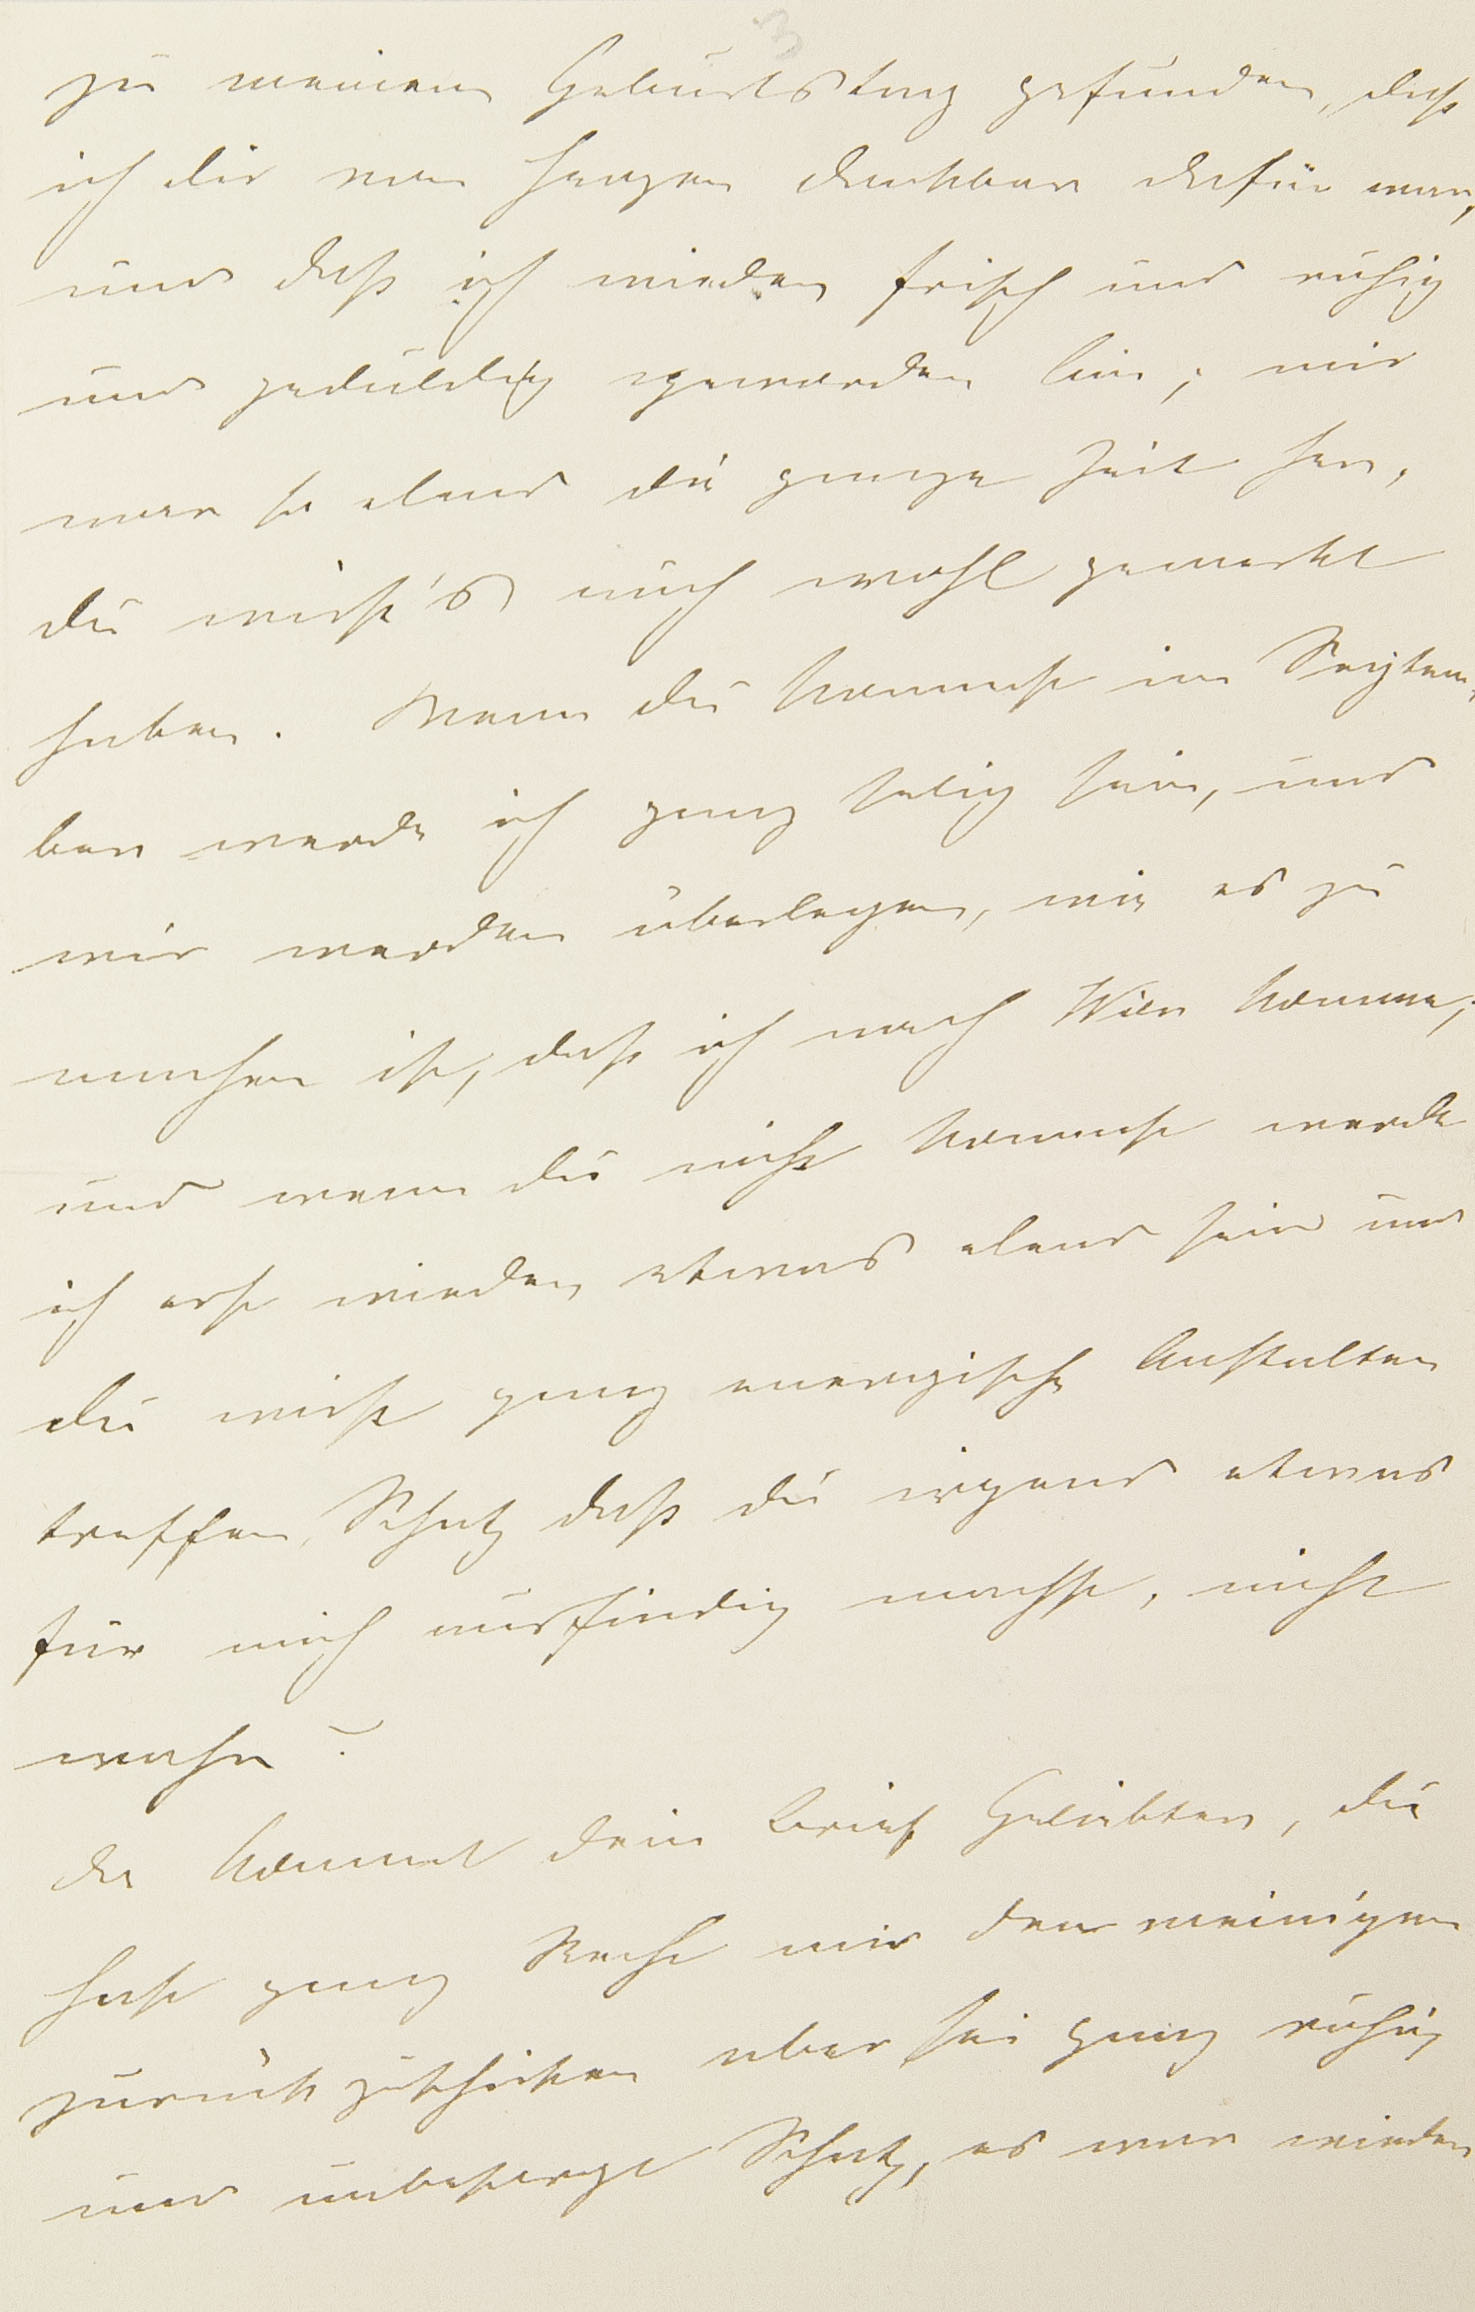 3
zu meinem Geburtstag gefunden, daß
ich dir von Herzen dankbar dafür war,
und daß ich wieder frisch und ruhig
und geduldig geworden bin; mir
war so elend die ganze Zeit her,
du wirst's auch wohl gemerkt
haben. Wenn du kommst im Septem,
ber werde ich ganz selig sein, und
wir werden überlegen, wie es zu
machen ist, daß ich nach Wien komme;
und wenn du nicht kommst werde
ich erst wieder etwas elend sein und
du wirst ganz energische Anstalten
treffen, Schatz daß du irgend etwas
für mich ausfindig machst, nicht
wahr?
da kommt dein Brief Geliebter, du
hast ganz Recht mir den meinigen
zurück zuschicken aber sei ganz ruhig
und unbesorgt Schatz, es war wieder